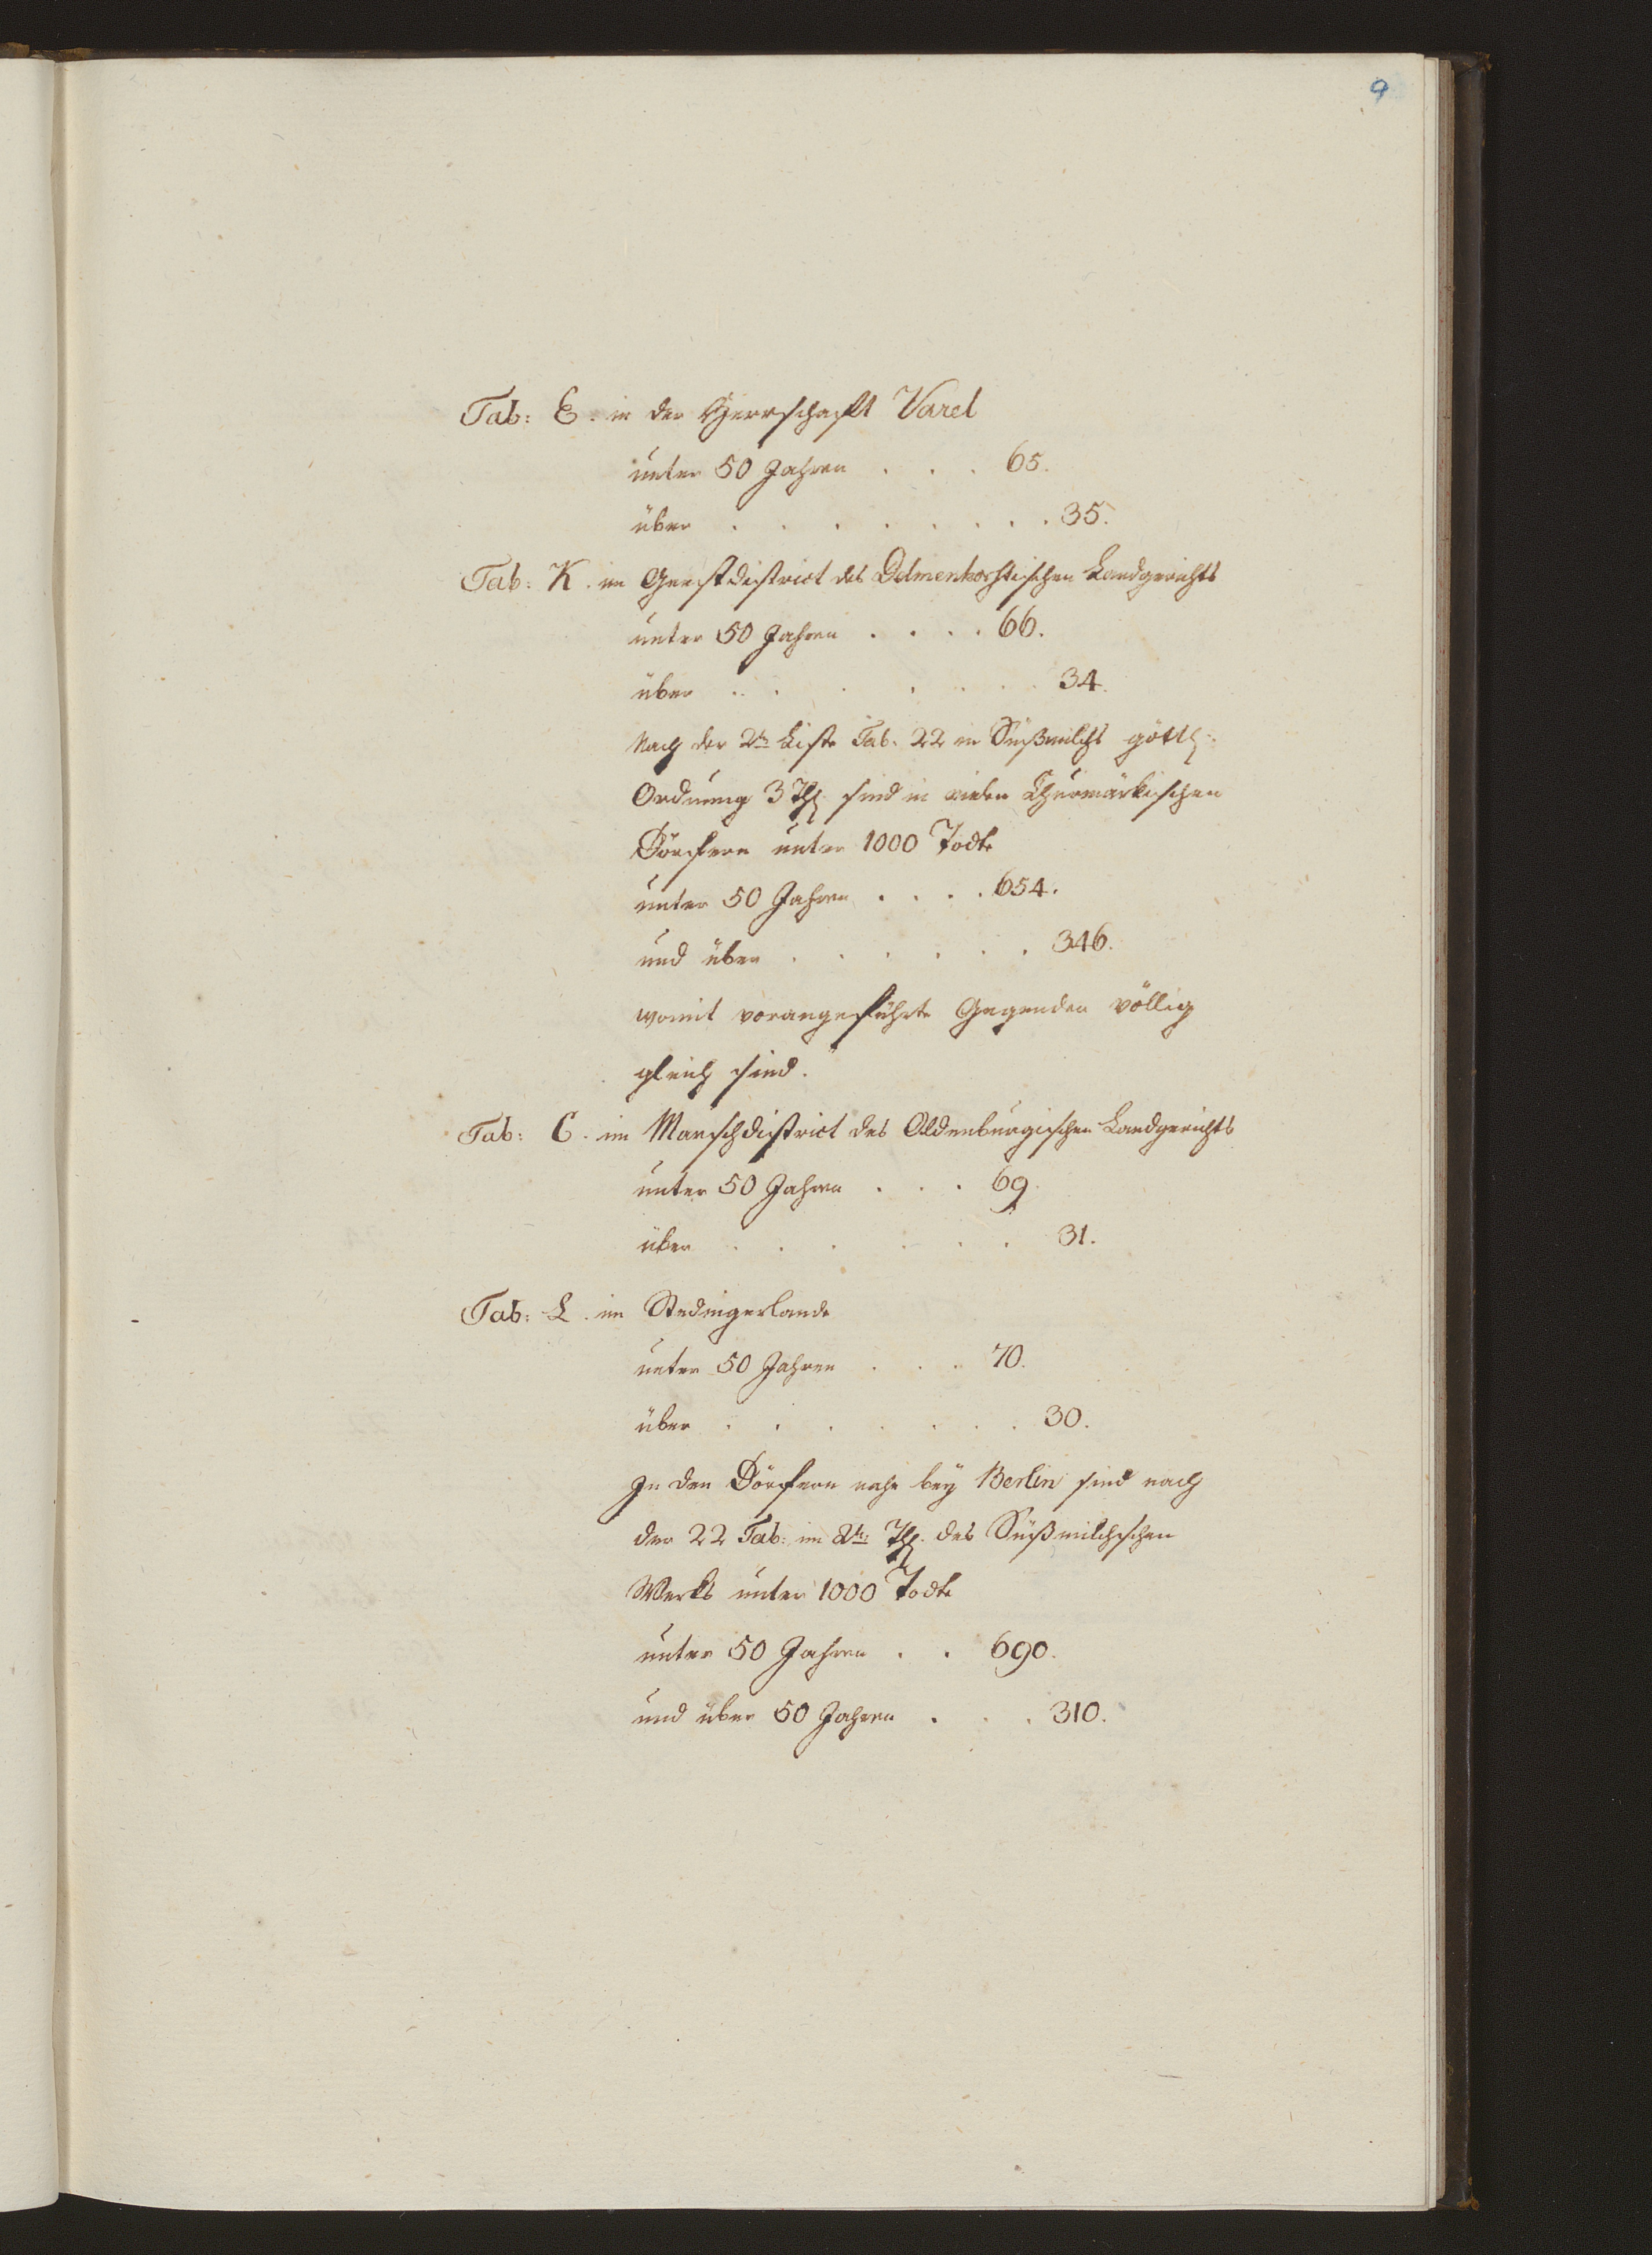 9
Tab: E. in der Herrschaft Varel
unter 50 Jahren . . . 65.
über . . . . . . . . 35.
Tab: K. im Geestdistrict des Delmenhorstischen Landgerichts
unter 50 Jahren . . . . 66.
über . . . . . . . 34.
Nach der 2ten Liste Tab. 22 in Süßmilchs göttl:
Ordnung 3 Th. sind in vielen Churmärkischen
Dörfern unter 1000 Todte
unter 50 Jahren . . . . 654.
und über . . . . . . 346.
womit vorangeführte Gegenden völlig
gleich sind.
Tab: C. im Marschdistrict des Oldenburgischen Landgerichts
unter 50 Jahren . . . 69.
über . . . . . . 31.
Tab: L. im Stedingerlande
unter 50 Jahren . . . 70.
über . . . . . . . 30.
In den Dörfern nahe bey Berlin sind nach
der 22 Tab: im 2ten Th. des Süßmilchschen
Werks unter 1000 Todte
unter 50 Jahren . . 690.
und über 50 Jahren . . . 310.